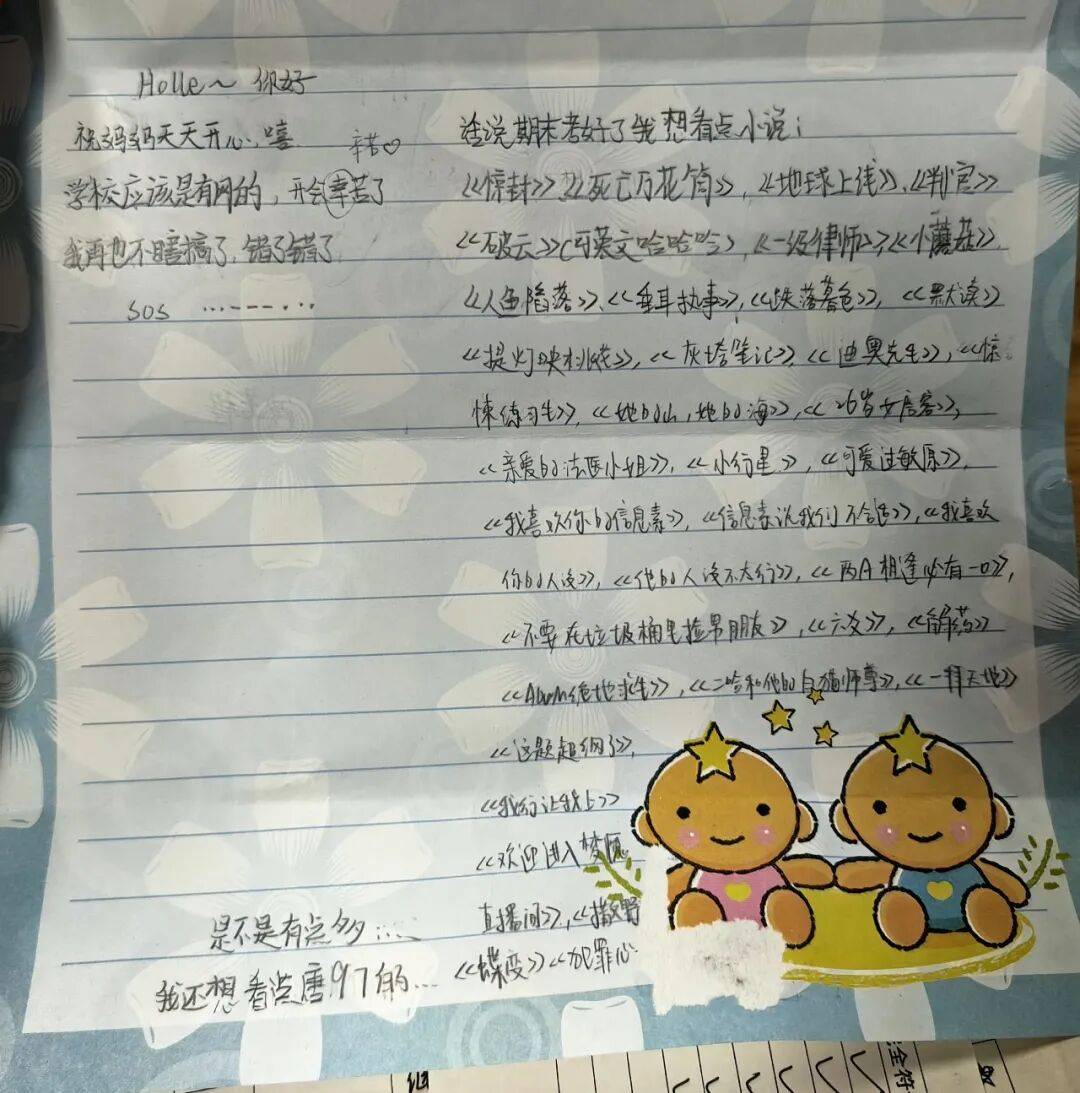 Holle~ 你好
祝妈妈天天开心,嘻
辛苦♡
学校应该是有网的,开会辛苦了
我再也不瞎搞了,错了错了
SOS ...---...
话说期末考好了我想看点小说:
《惊封》《死亡万花筒》,《地球上线》,《判官》
《破云》(可英文哈哈哈),《一级律师》,《小蘑菇》
《人鱼陷落》,《垂耳执事》,《跌落暮色》,《默读》
《提灯映桃花》,《灰塔笔记》,《迪奥先生》,《惊
悚练习生》,《她的山,她的海》,《26岁女房客》,
《亲爱的法医小姐》,《小行星》,《可爱过敏原》,
《我喜欢你的信息素》,《信息素说我们不合适》,《我喜欢
你的人设》,《他的人设不太行》,《两A相逢必有一O》,
《不要在垃圾桶里捡男朋友》,《六爻》,《解药》
《Awm绝地求生》,《二哈和他的白猫师尊》,《一拜天地》
《这题超纲了》,
《我行让我上》
《欢迎进入梦魇
直播间》,《撒野
《蝶变》《犯罪心
是不是有点多……
我还想看点唐97的…
全符